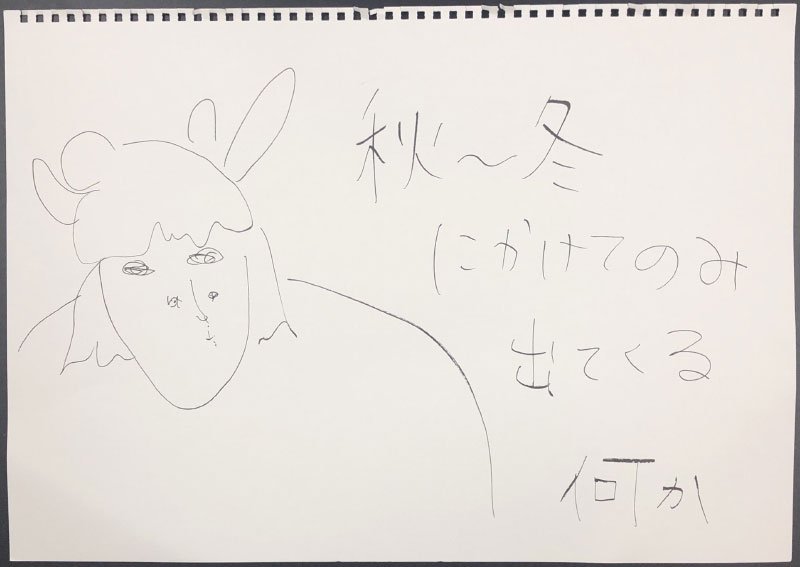 秋～冬
にかけてのみ
出てくる
何か